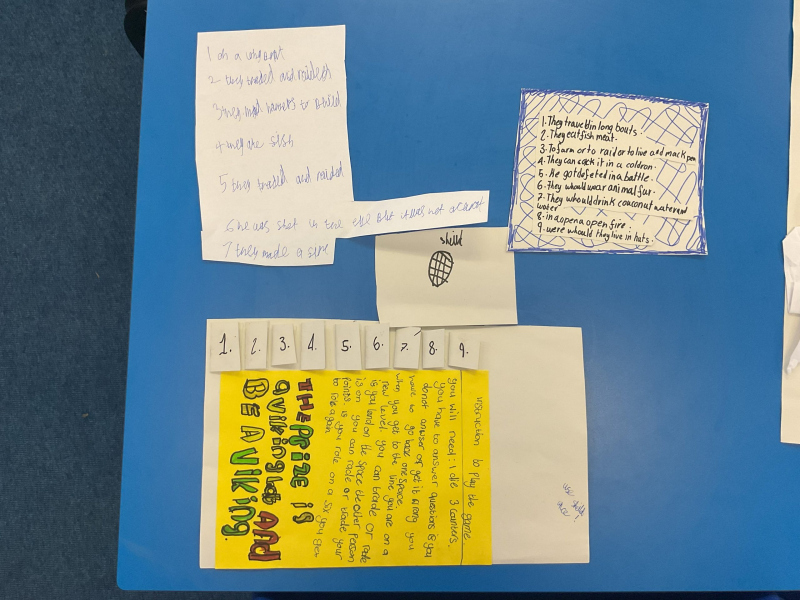 1 on a
2- they traded and raided
3 they had to
4 they are fish
5 they traded and raided
6 he was shot in the but it was not
7 they made a
shild
1. They traveld in long bouts.
2. They eat fish meat.
3. To farm or to raid or to live and mack pen
4. They can cock it in a coldron.
5. He got defeted in a battle.
6. They whould wear animal fur.
7. They whould drink coaconut water and
water
8. in a open a open fire.
9. were whould they live in huts.
1. 2. 3. 4. 5. 6. 7. 8. 9.
instruction to play the game
you will need: 1 die 3 counters.
you have to answer questions is you
do not answer or get it wrong you
have to go back one space.
when you get to the line you are on a
new level. you can trade or rade
is you land on the space the other person
is on you can rade or trade your
points is you role on a six you
to role again
THE PRIZE is
a viking AND
BE A VIKING.
use shild
once